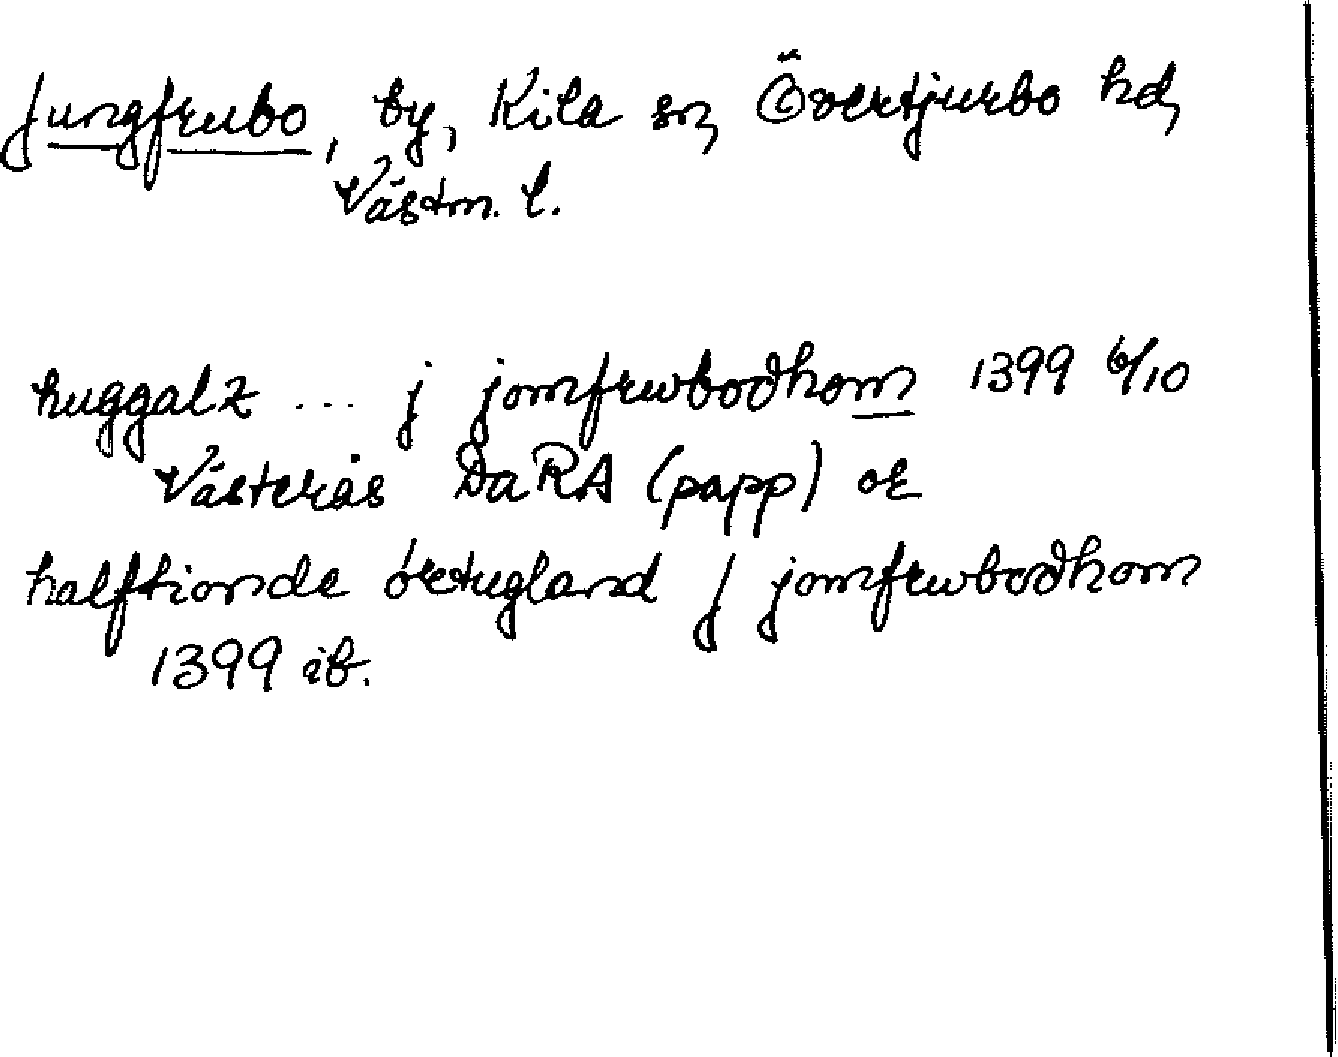 Jungfrubo, by, Kila sn, Övertjurbo hd,
Västm. l.
huggalz ... j jomfrwbodhom 1399 6/10
Västerås DaRA (papp) or
halftionde örtugland j jomfrwbodhom
1399 ib.